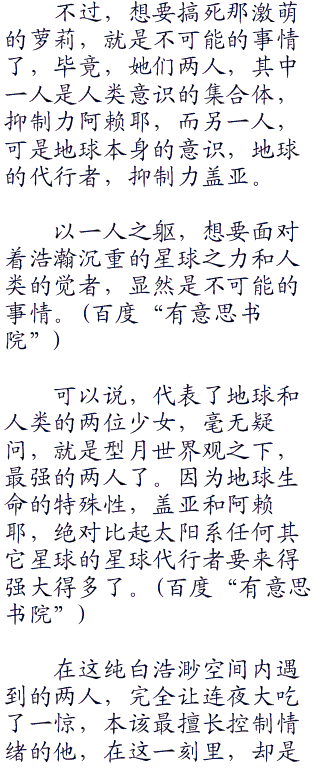 不过，想要搞死那激萌
的萝莉，就是不可能的事情
了，毕竟，她们两人，其中
一人是人类意识的集合体，
抑制力阿赖耶，而另一人，
可是地球本身的意识，地球
的代行者，抑制力盖亚。
以一人之躯，想要面对
着浩瀚沉重的星球之力和人
类的觉者，显然是不可能的
事情。(百度“有意思书
院”)
可以说，代表了地球和
人类的两位少女，毫无疑
问，就是型月世界观之下，
最强的两人了。因为地球生
命的特殊性，盖亚和阿赖
耶，绝对比起太阳系任何其
它星球的星球代行者要来得
强大得多了。(百度“有意思
书院”)
在这纯白浩渺空间内遇
到的两人，完全让连夜大吃
了一惊，本该最擅长控制情
绪的他，在这一刻里，却是